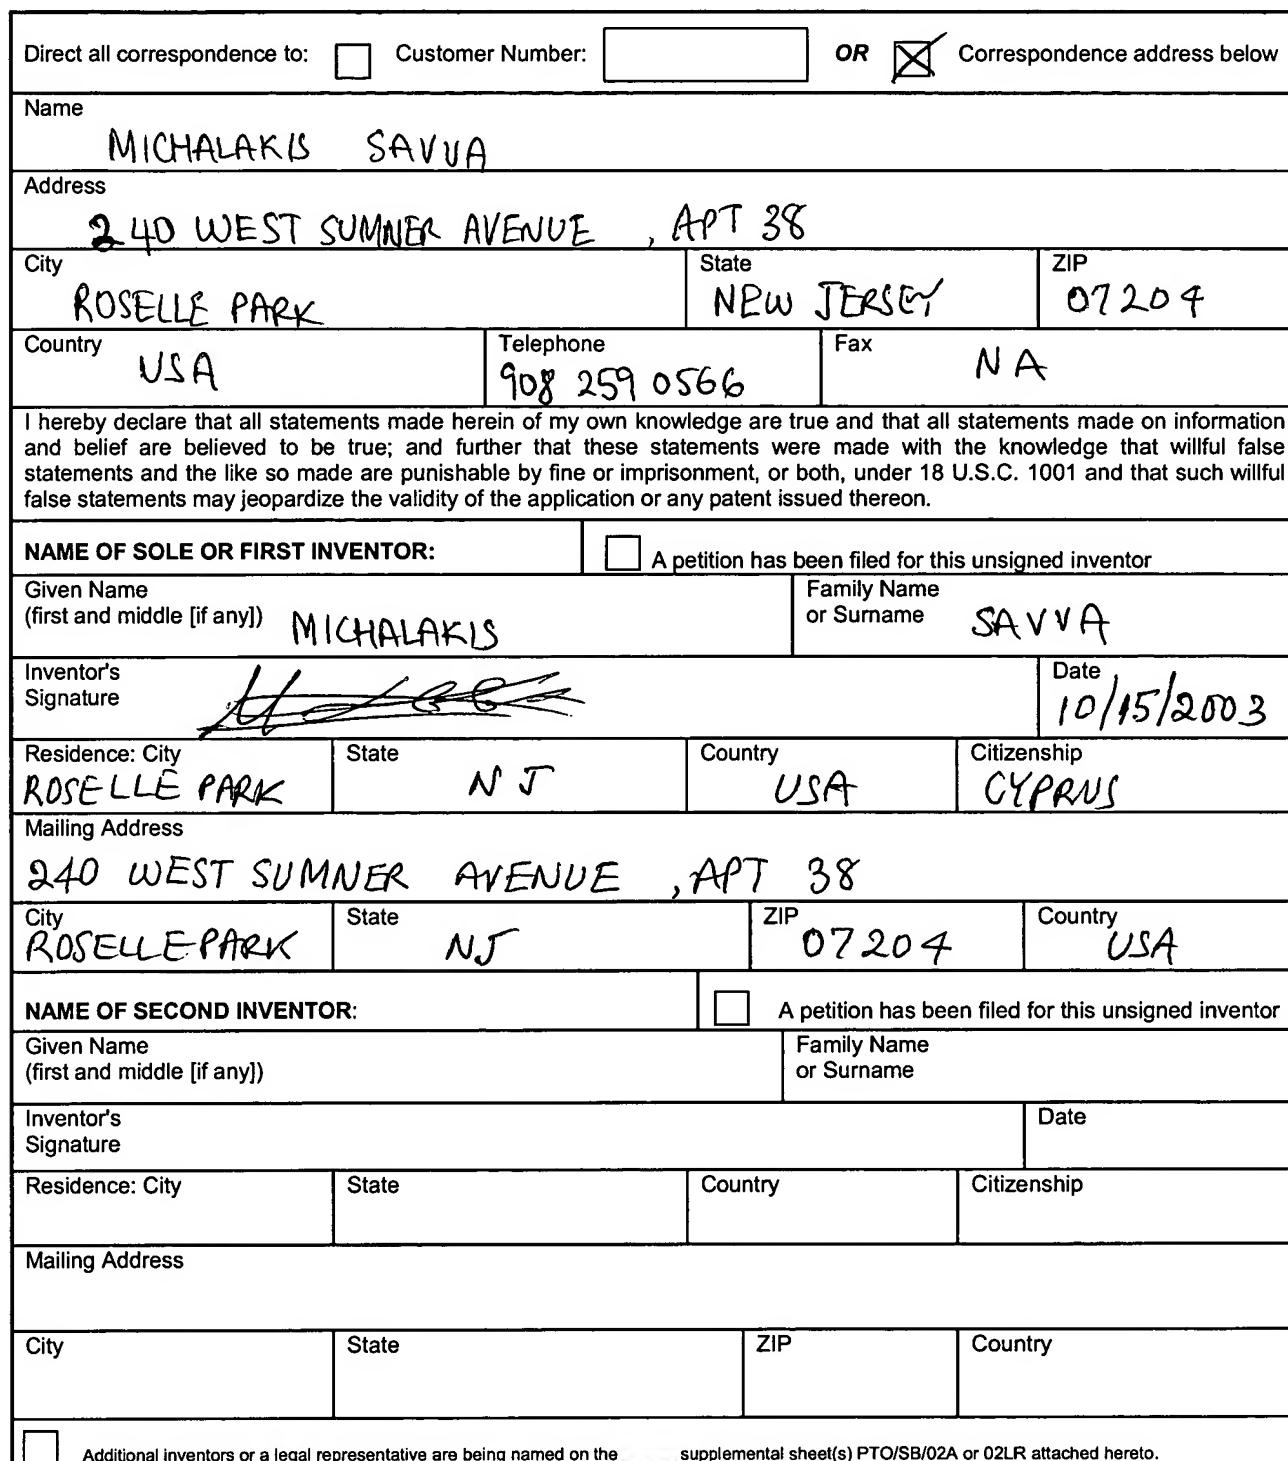 Direct all correspondence to: Customer Number: OR Correspondence address below
Name
MICHALAKIS SAVVA
Address
240 WEST SUMNER AVENUE , APT 38
City State ZIP
ROSELLE PARK NEW JERSEY 07204
Country Telephone Fax
USA 908 259 0566 NA
I hereby declare that all statements made herein of my own knowledge are true and that all statements made on information
and belief are believed to be true; and further that these statements were made with the knowledge that willful false
statements and the like so made are punishable by fine or imprisonment, or both, under 18 U.S.C. 1001 and that such willful
false statements may jeopardize the validity of the application or any patent issued thereon.
NAME OF SOLE OR FIRST INVENTOR: A petition has been filed for this unsigned inventor
Given Name Family Name
(first and middle [if any]) MICHALAKIS or Surname SAVVA
Inventor's Date
Signature 10/15/2003
Residence: City State Country Citizenship
ROSELLE PARK NJ USA CYPRUS
Mailing Address
240 WEST SUMNER AVENUE , APT 38
City State ZIP Country
ROSELLE PARK NJ 07204 USA
NAME OF SECOND INVENTOR: A petition has been filed for this unsigned inventor
Given Name Family Name
(first and middle [if any]) or Surname
Inventor's Date
Signature
Residence: City State Country Citizenship
Mailing Address
City State ZIP Country
Additional inventors or a legal representative are being named on the supplemental sheet(s) PTO/SB/02A or 02LR attached hereto.